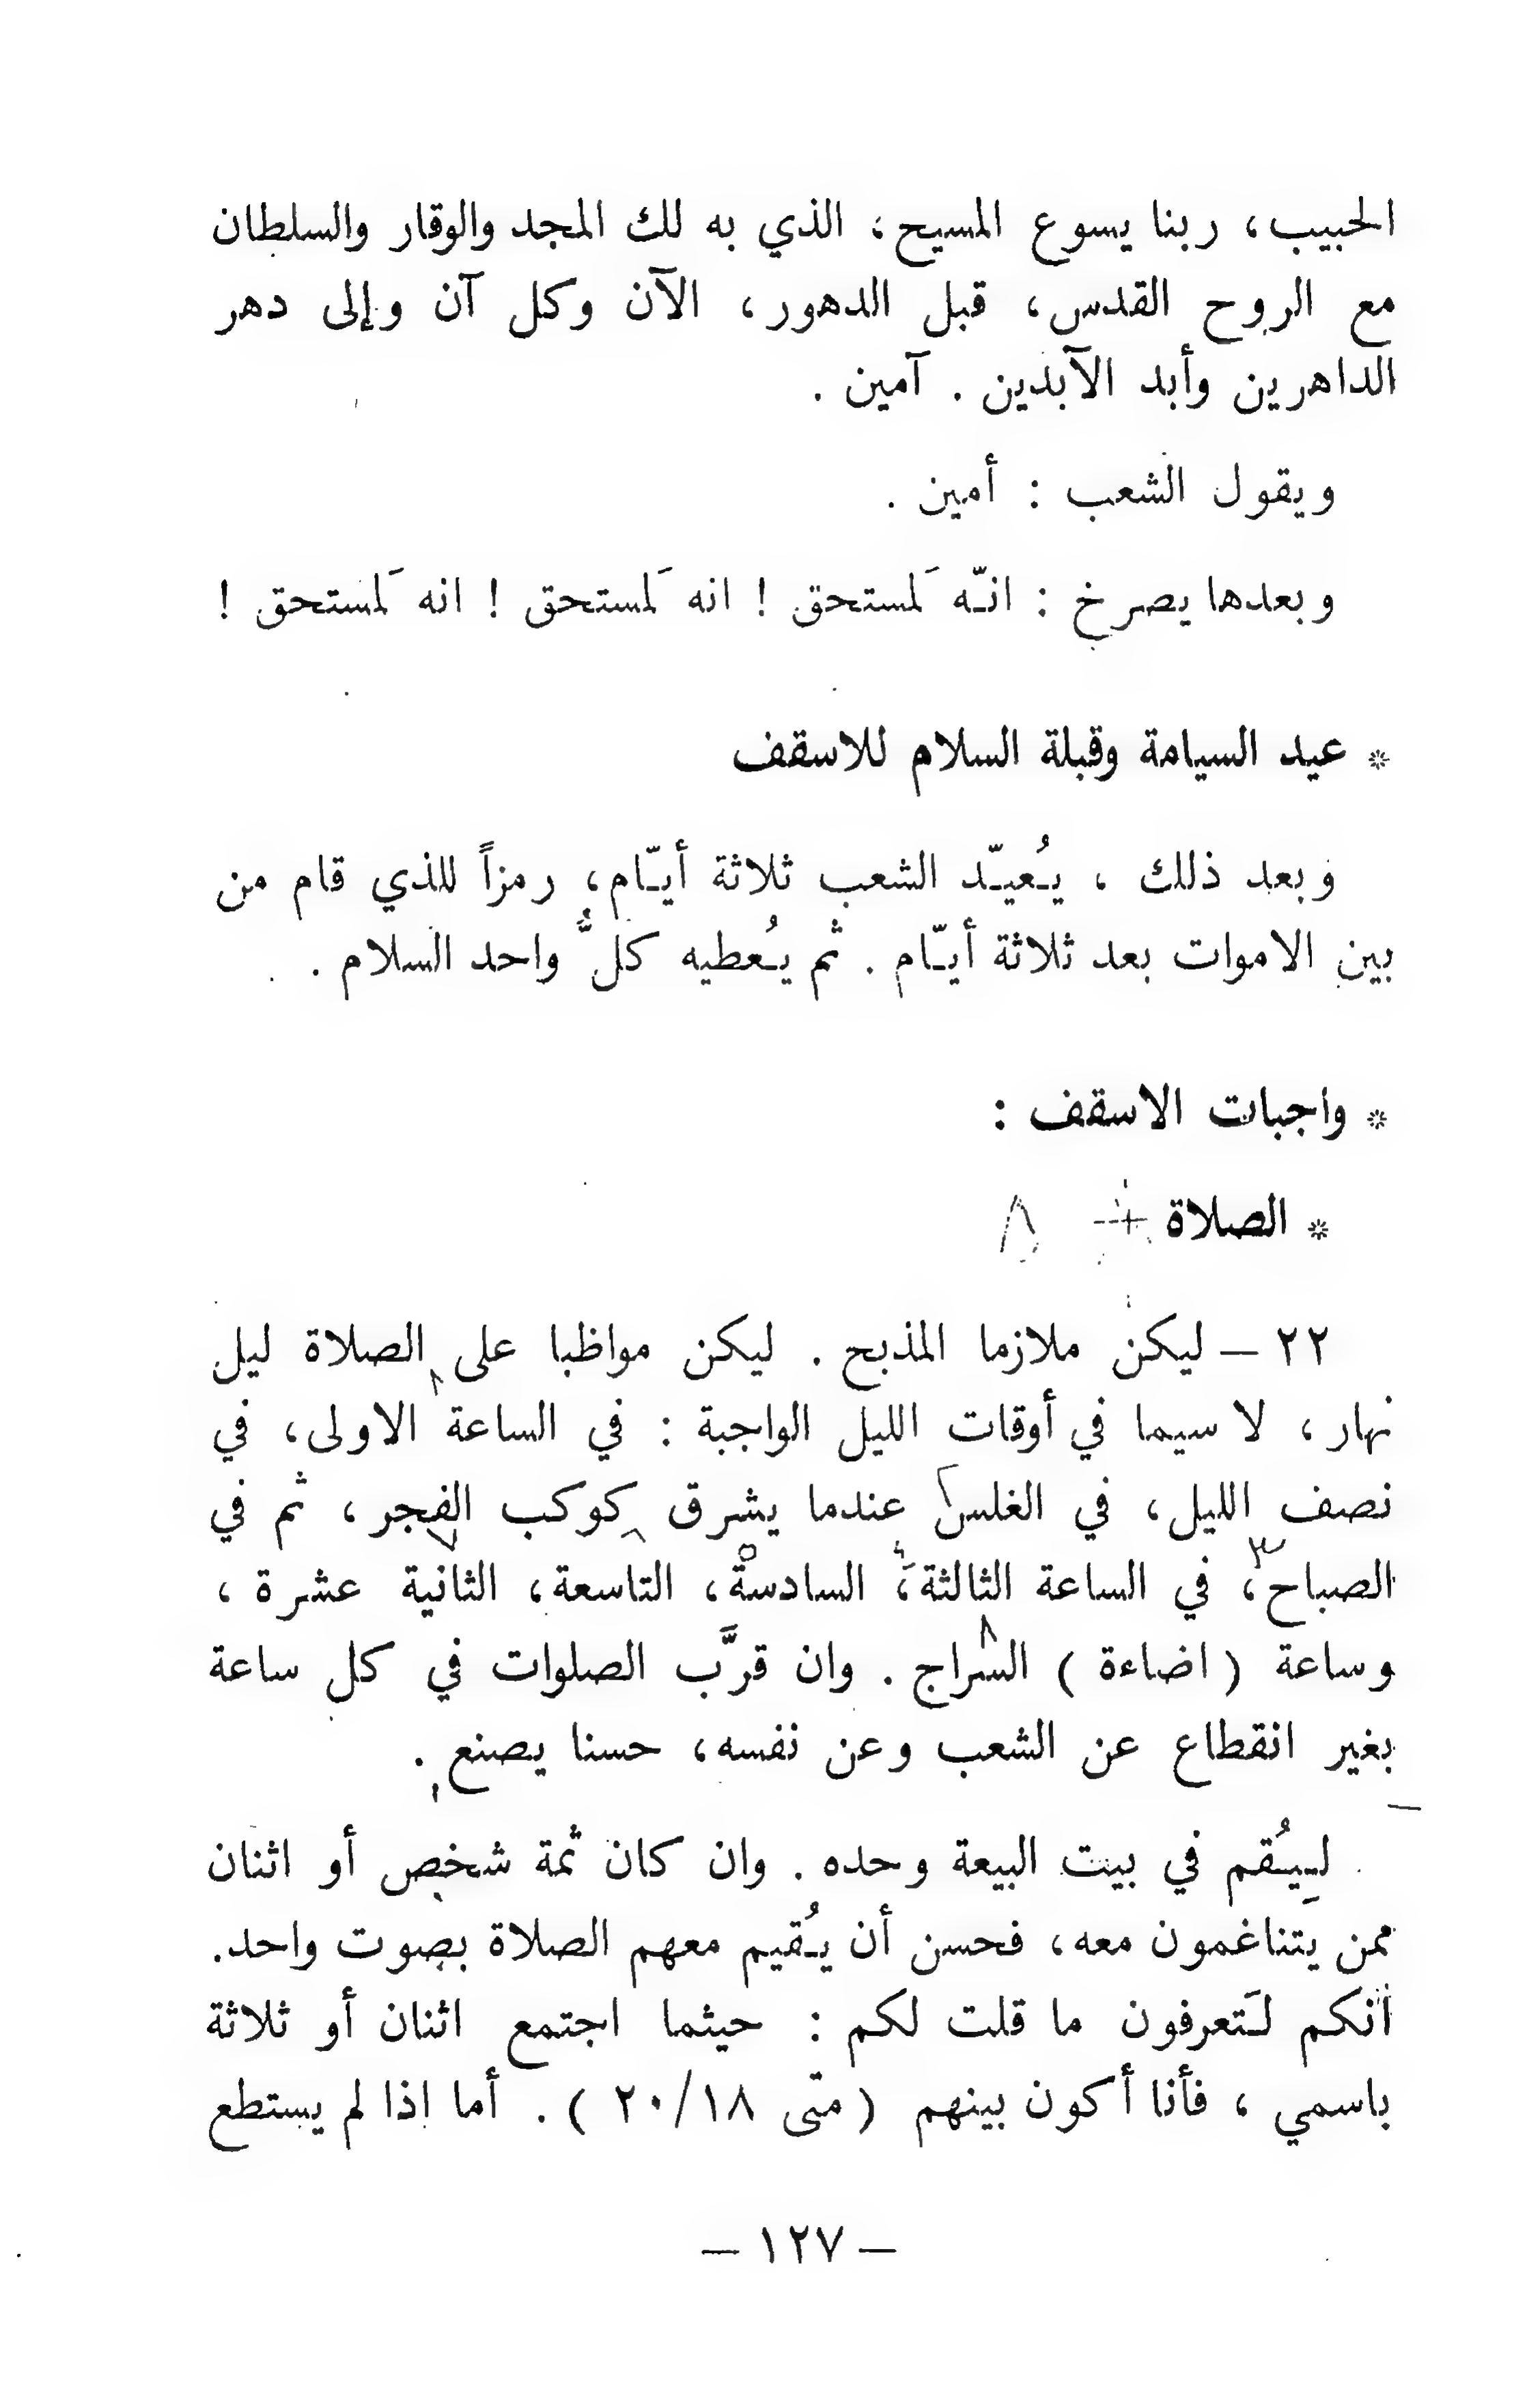 الحبيب، ربنا يسوع المسيح، الذي به لك المجد والوقار والسلطان
مع الروح القدس، قبل الدهور، الآن وكل آن وإلى دهر
الداهرين وأبد الآبدين . آمين .
ويقول الشعب : أمين .
وبعدها يصرخ : انّه لَمستحق ! انه لَمستحق ! انه لَمستحق !
* عيد السيامة وقبلة السلام للاسقف
وبعد ذلك ، يُعيّد الشعب ثلاثة أيّام، رمزاً للذي قام من
بين الاموات بعد ثلاثة أيّام . ثم يُعطيه كلُّ واحد السلام .
* واجبات الاسقف :
* الصلاة
٢٢ – ليكن ملازما المذبح . ليكن مواظبا على الصلاة ليل
نهار ، لا سيما في أوقات الليل الواجبة : في الساعة الاولى، في
نصف الليل، في الغلس عندما يشرق كوكب الفجر ، ثم في
الصباح، في الساعة الثالثة، السادسة، التاسعة، الثانية عشرة ،
وساعة ( اضاءة ) السراج . وان قرَّب الصلوات في كل ساعة
بغير انقطاع عن الشعب وعن نفسه، حسنا يصنع .
لِيُقم في بيت البيعة وحده . وان كان ثمة شخص أو اثنان
ممن يتناغمون معه، فحسن أن يُقيم معهم الصلاة بصوت واحد.
انكم لَتعرفون ما قلت لكم : حيثما اجتمع اثنان أو ثلاثة
باسمي ، فأنا أكون بينهم ( متّى ٢٠/١٨ ) . أما إذا لم يستطع
– ١٢٧ –